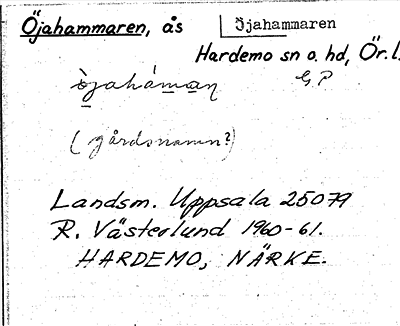 Öjahammaren, ås
Öjahammaren
Hardemo sn o. hd, Ör. l.
öjahàman G P
(gårdsnamn?)
Landsm. Uppsala 25079
R. Västerlund 1960-61.
HARDEMO, NÄRKE.